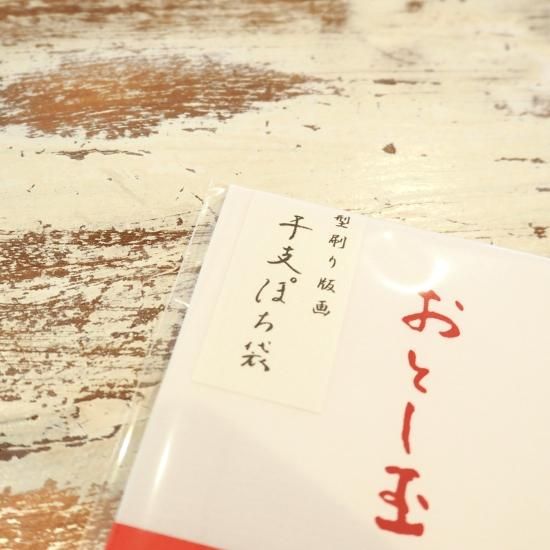 おとし玉
型刷り版画
干支ぽち袋